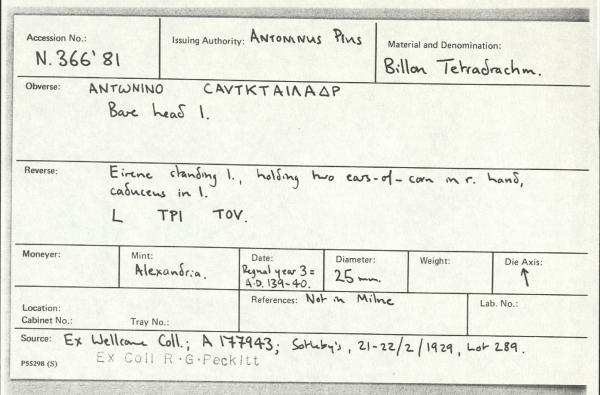 Accession No.: Issuing Authority: ANTONINUS PIUS Material and Denomination:
N.366'81 Billon Tetradrachm.
Obverse: ΑΝΤΩΝΙΝΟ CΑVΤΚΤΑΙΛΑΔΡ
Bare head l.
Reverse: Eirene standing l., holding two ears-of-corn in r. hand,
caduceus in l.
L ΤΡΙ ΤΟV.
Moneyer: Mint: Date: Diameter: Weight: Die Axis:
Alexandria. Regnal year 3 = 25 mm. ↑
A.D. 139-40.
Location: References: Not in Milne Lab. No.:
Cabinet No.: Tray No.:
Source: Ex Wellcome Coll.; A 177943; Sotheby's, 21-22/2/1929, Lot 289.
Ex Coll R·G·Peckitt
P55298 (S)